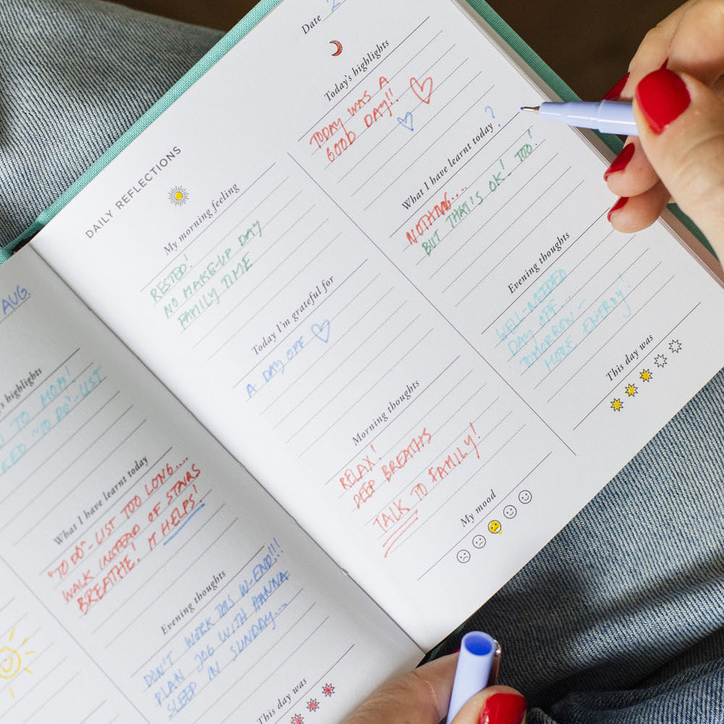 AUG
highlights
TO MOM!
"TO DO"-LIST
What I have learnt today
"TO DO"-LIST TOO LONG....
WALK INSTEAD OF STAIRS
BREATHE! IT HELPS!
Evening thoughts
DON'T WORK THIS W-END!!!
PLAN JOG WITH HANNA
SLEEP IN SUNDAY...
This day was
DAILY REFLECTIONS
My morning feeling
RESTED!
NO MAKE-UP DAY
FAMILY TIME
Today I'm grateful for
A DAY OFF
Morning thoughts
RELAX!
DEEP BREATHS
TALK TO FAMILY!
My mood
Date 2
Today's highlights
TODAY WAS A
GOOD DAY!!
What I have learnt today ?
NOTHING....
BUT THAT'S OK! TOO!
Evening thoughts
WELL-NEEDED
DAY OFF...
TOMORROW -
MORE ENERGY!
This day was